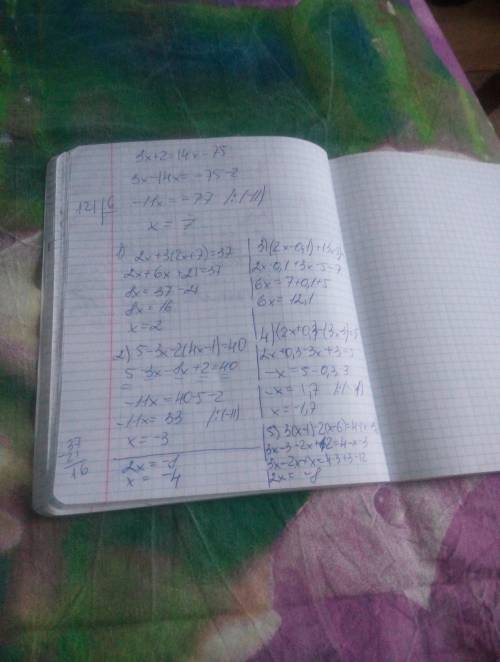 3x+2=14x-75
3x-14x=-75-2
-11x=-77 /:(-11)
x=7
121 | 6
1) 2x+3(2x+7)=37
2x+6x+21=37
8x=37-21
8x=16
x=2
2) 5-3x-2(4x-1)=40
5-3x-8x+2=40
-11x=40-5-2
-11x=33 /:(-11)
x=-3
37
-21
16
2x=-8
x=-4
3) (2x-0,1)+(3x
2x-0,1+3x-5=7
6x=7+0,1+5
6x=12,1
4) (2x+0,3)-(3x-3)=5
2x+0,3-3x+3=5
-x=5-0,3-3
-x=1,7 /:(-1)
x=-1,7
5) 3(x-1)-2(x-6)=4-x-3
3x-3-2x+12=4-x-3
3x-2x+x=4-3+3-12
2x=-8